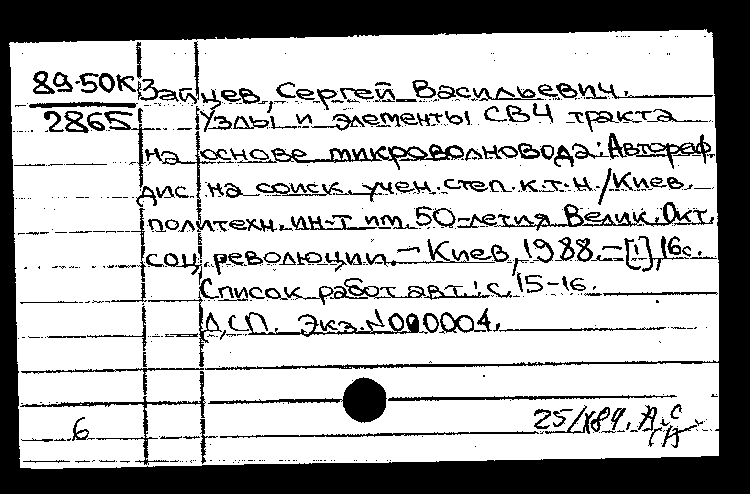 89-50К Зайцев, Сергей Васильевич.
2865 Узлы и элементы СВЧ тракта
на основе микроволновода: Автореф.
дис. на соиск. учен. степ. к.т.н. / Киев.
политехн. ин-т им. 50-летия Велик. Окт.
соц. революции. - Киев, 1988. - [1], 16 с.
Список работ авт.: с. 15-16.
ДСП. Экз. N 000004.
6